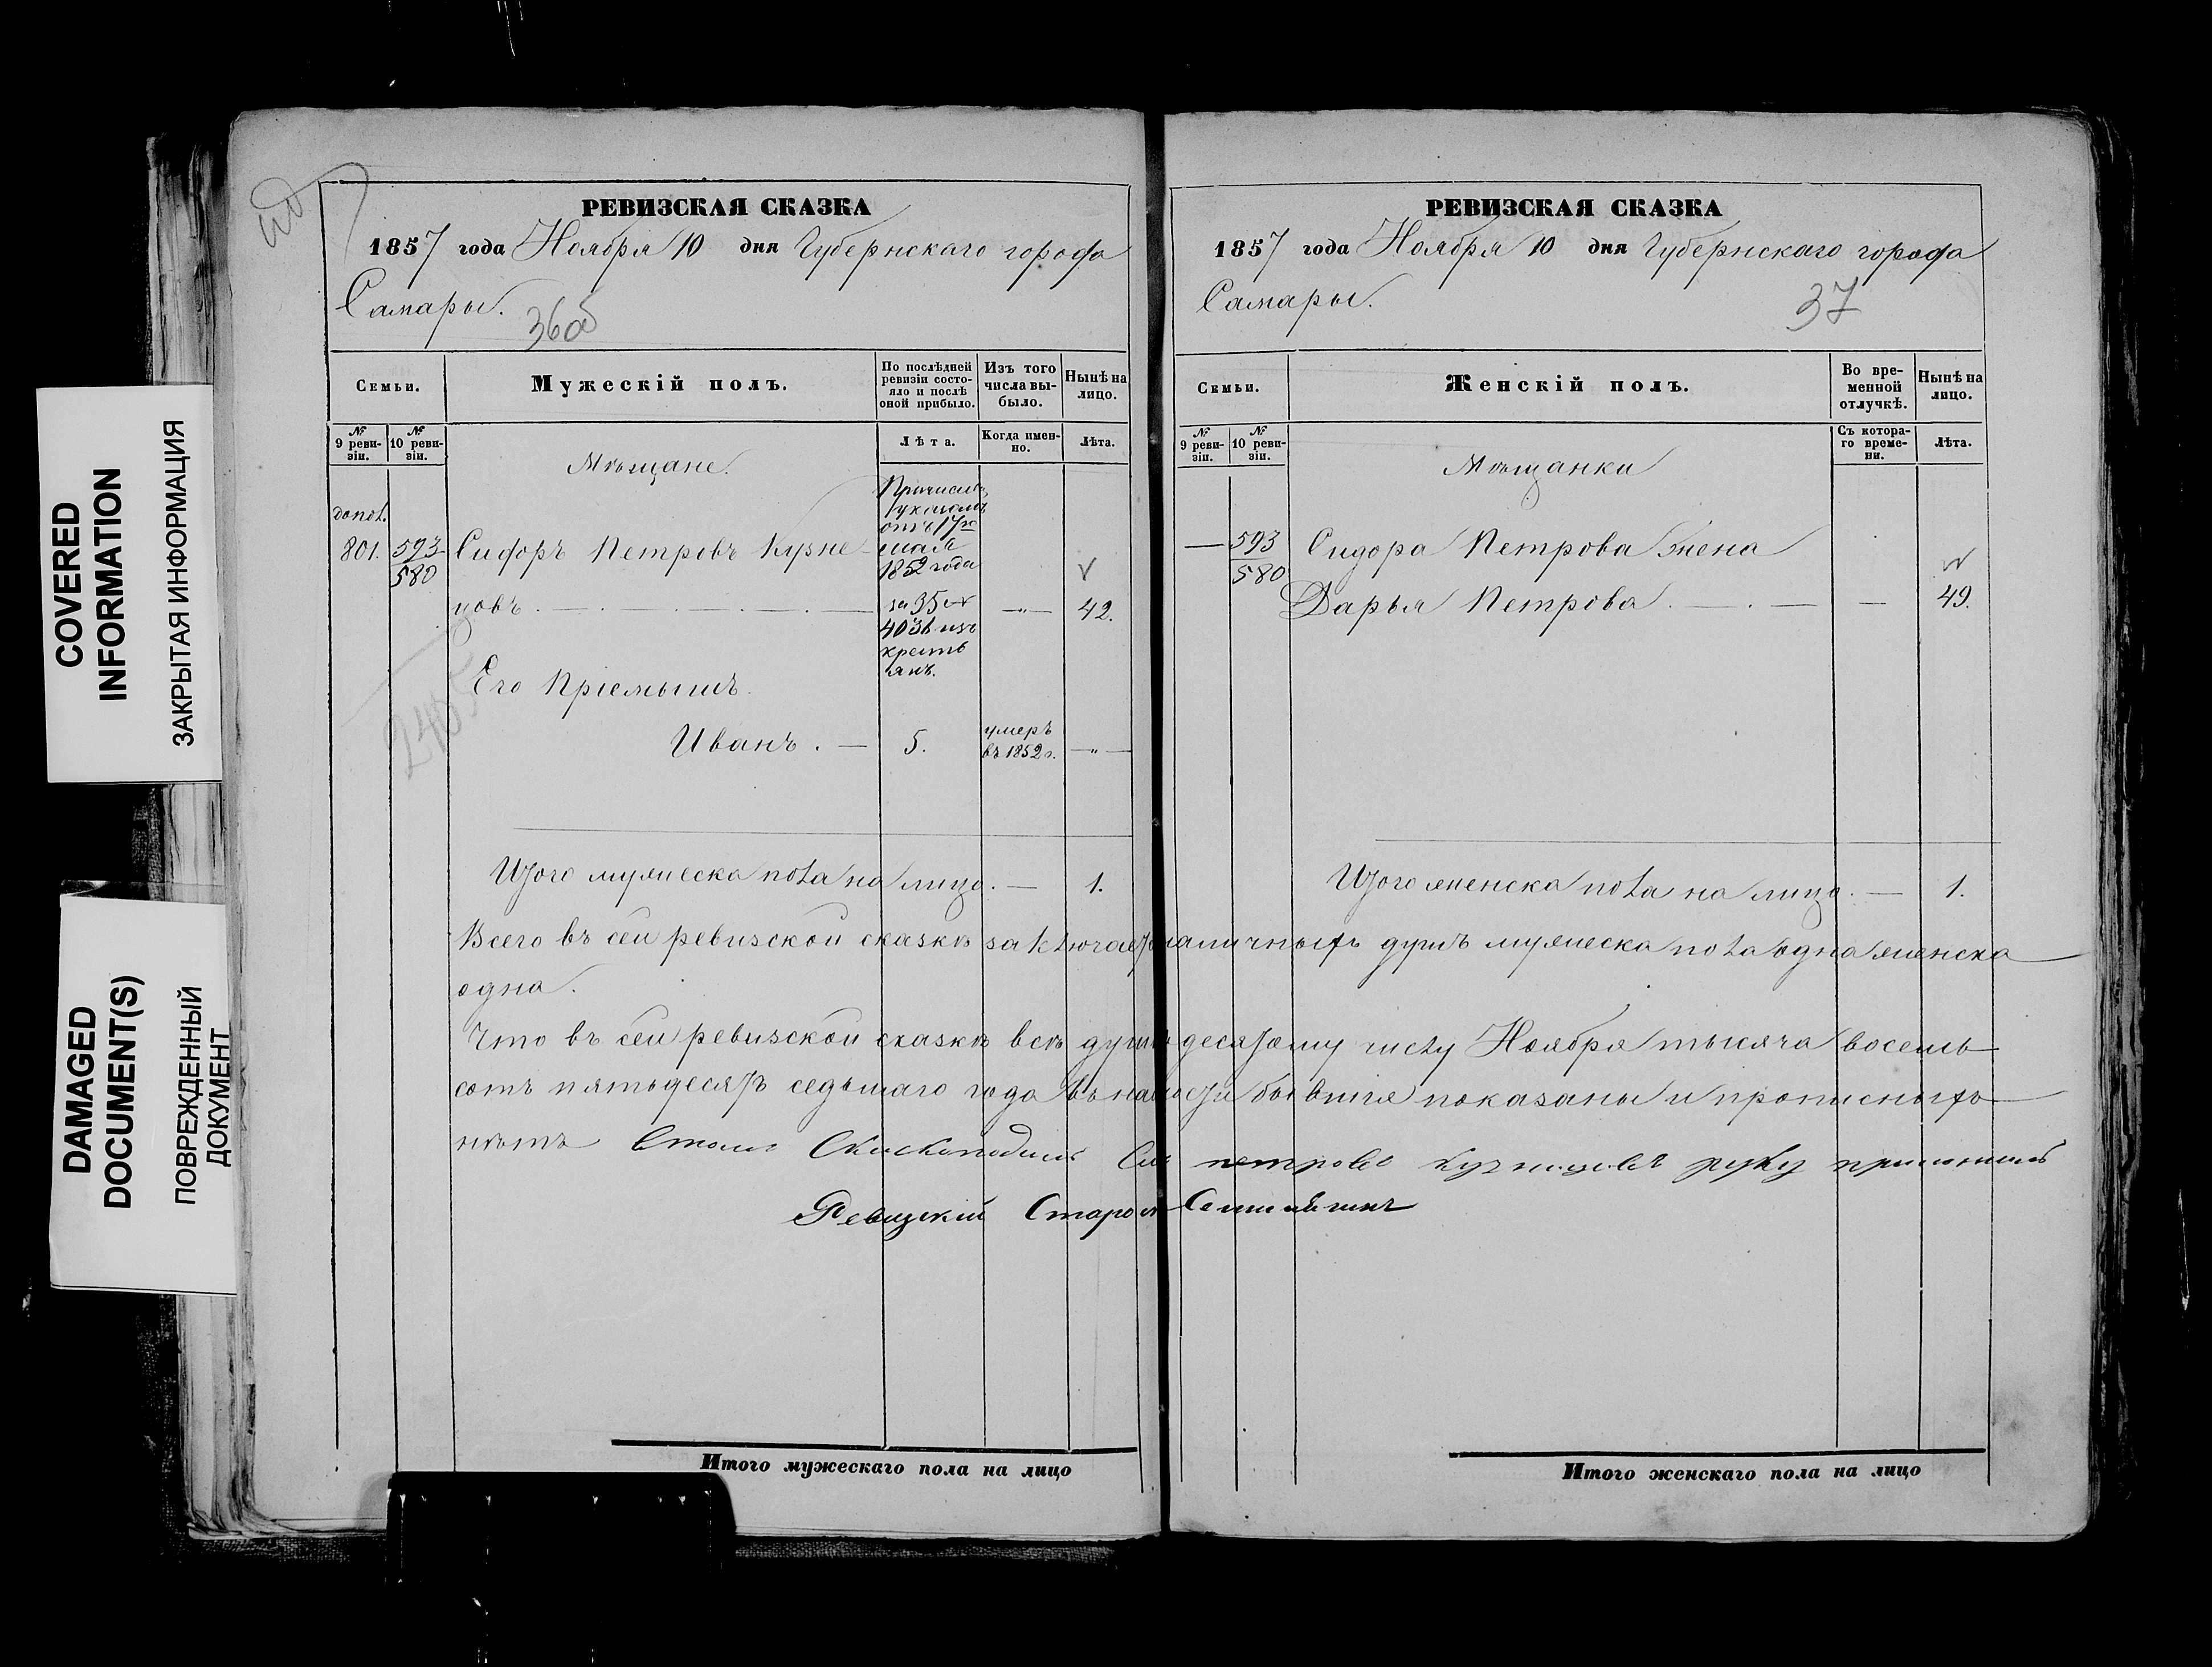 COVERED
INFORMATION
ЗАКРЫТАЯ ИНФОРМАЦИЯ
DAMAGED
DOCUMENT(S)
ПОВРЕЖДЕННЫЙ
ДОКУМЕНТ
РЕВИЗСКАЯ СКАЗКА
1857 года Ноября 10 дня Губернскаго города
Самары.
36об
Семьи.
Мужескій полъ.
По послѣдней
ревизіи состо-
яло и послѣ
оной прибыло.
Изъ того
числа вы-
было.
Нынѣ на
лицо.
№
9 реви-
зіи.
№
10 реви-
зіи.
Лѣта.
Когда имен-
но.
Лѣта.
Мѣщане.
допол.
801. 593 Сидоръ Петровъ Кузне-
580
цовъ. 42.
Причислен
указомъ
отъ 17го
мая
1852 года
за 35 и
4036 изъ
кресть
янъ.
Его Пріемышъ
Иванъ. — 5. умеръ
въ 1852 г.
Итого мужеска пола на лицо. — 1.
РЕВИЗСКАЯ СКАЗКА
1857 года Ноября 10 дня Губернскаго города
Самары.
37
Семьи.
Женскій полъ.
Во вре-
менной
отлучкѣ.
Нынѣ на
лицо.
№
9 реви-
зіи.
№
10 реви-
зіи.
Съ котора-
го време-
ни.
Лѣта.
Мѣщанки
— 593 Сидора Петрова жена
580
Дарья Петрова. — 49.
Итого женска пола на лицо. — 1.
Всего въ сей ревизской сказкѣ заключается наличныхъ душъ мужеска пола одна женска
одна.
Что въ сей ревизской сказкѣ всѣ души десятому числу Ноября тысяча восемь
сотъ пятьдесятъ седьмаго года въ налости бывшія показаны и прописныхъ
нѣтъ петровъ кузнецовъ руку приложилъ
Ревизский Староста
Итого мужескаго пола на лицо
Итого женскаго пола на лицо